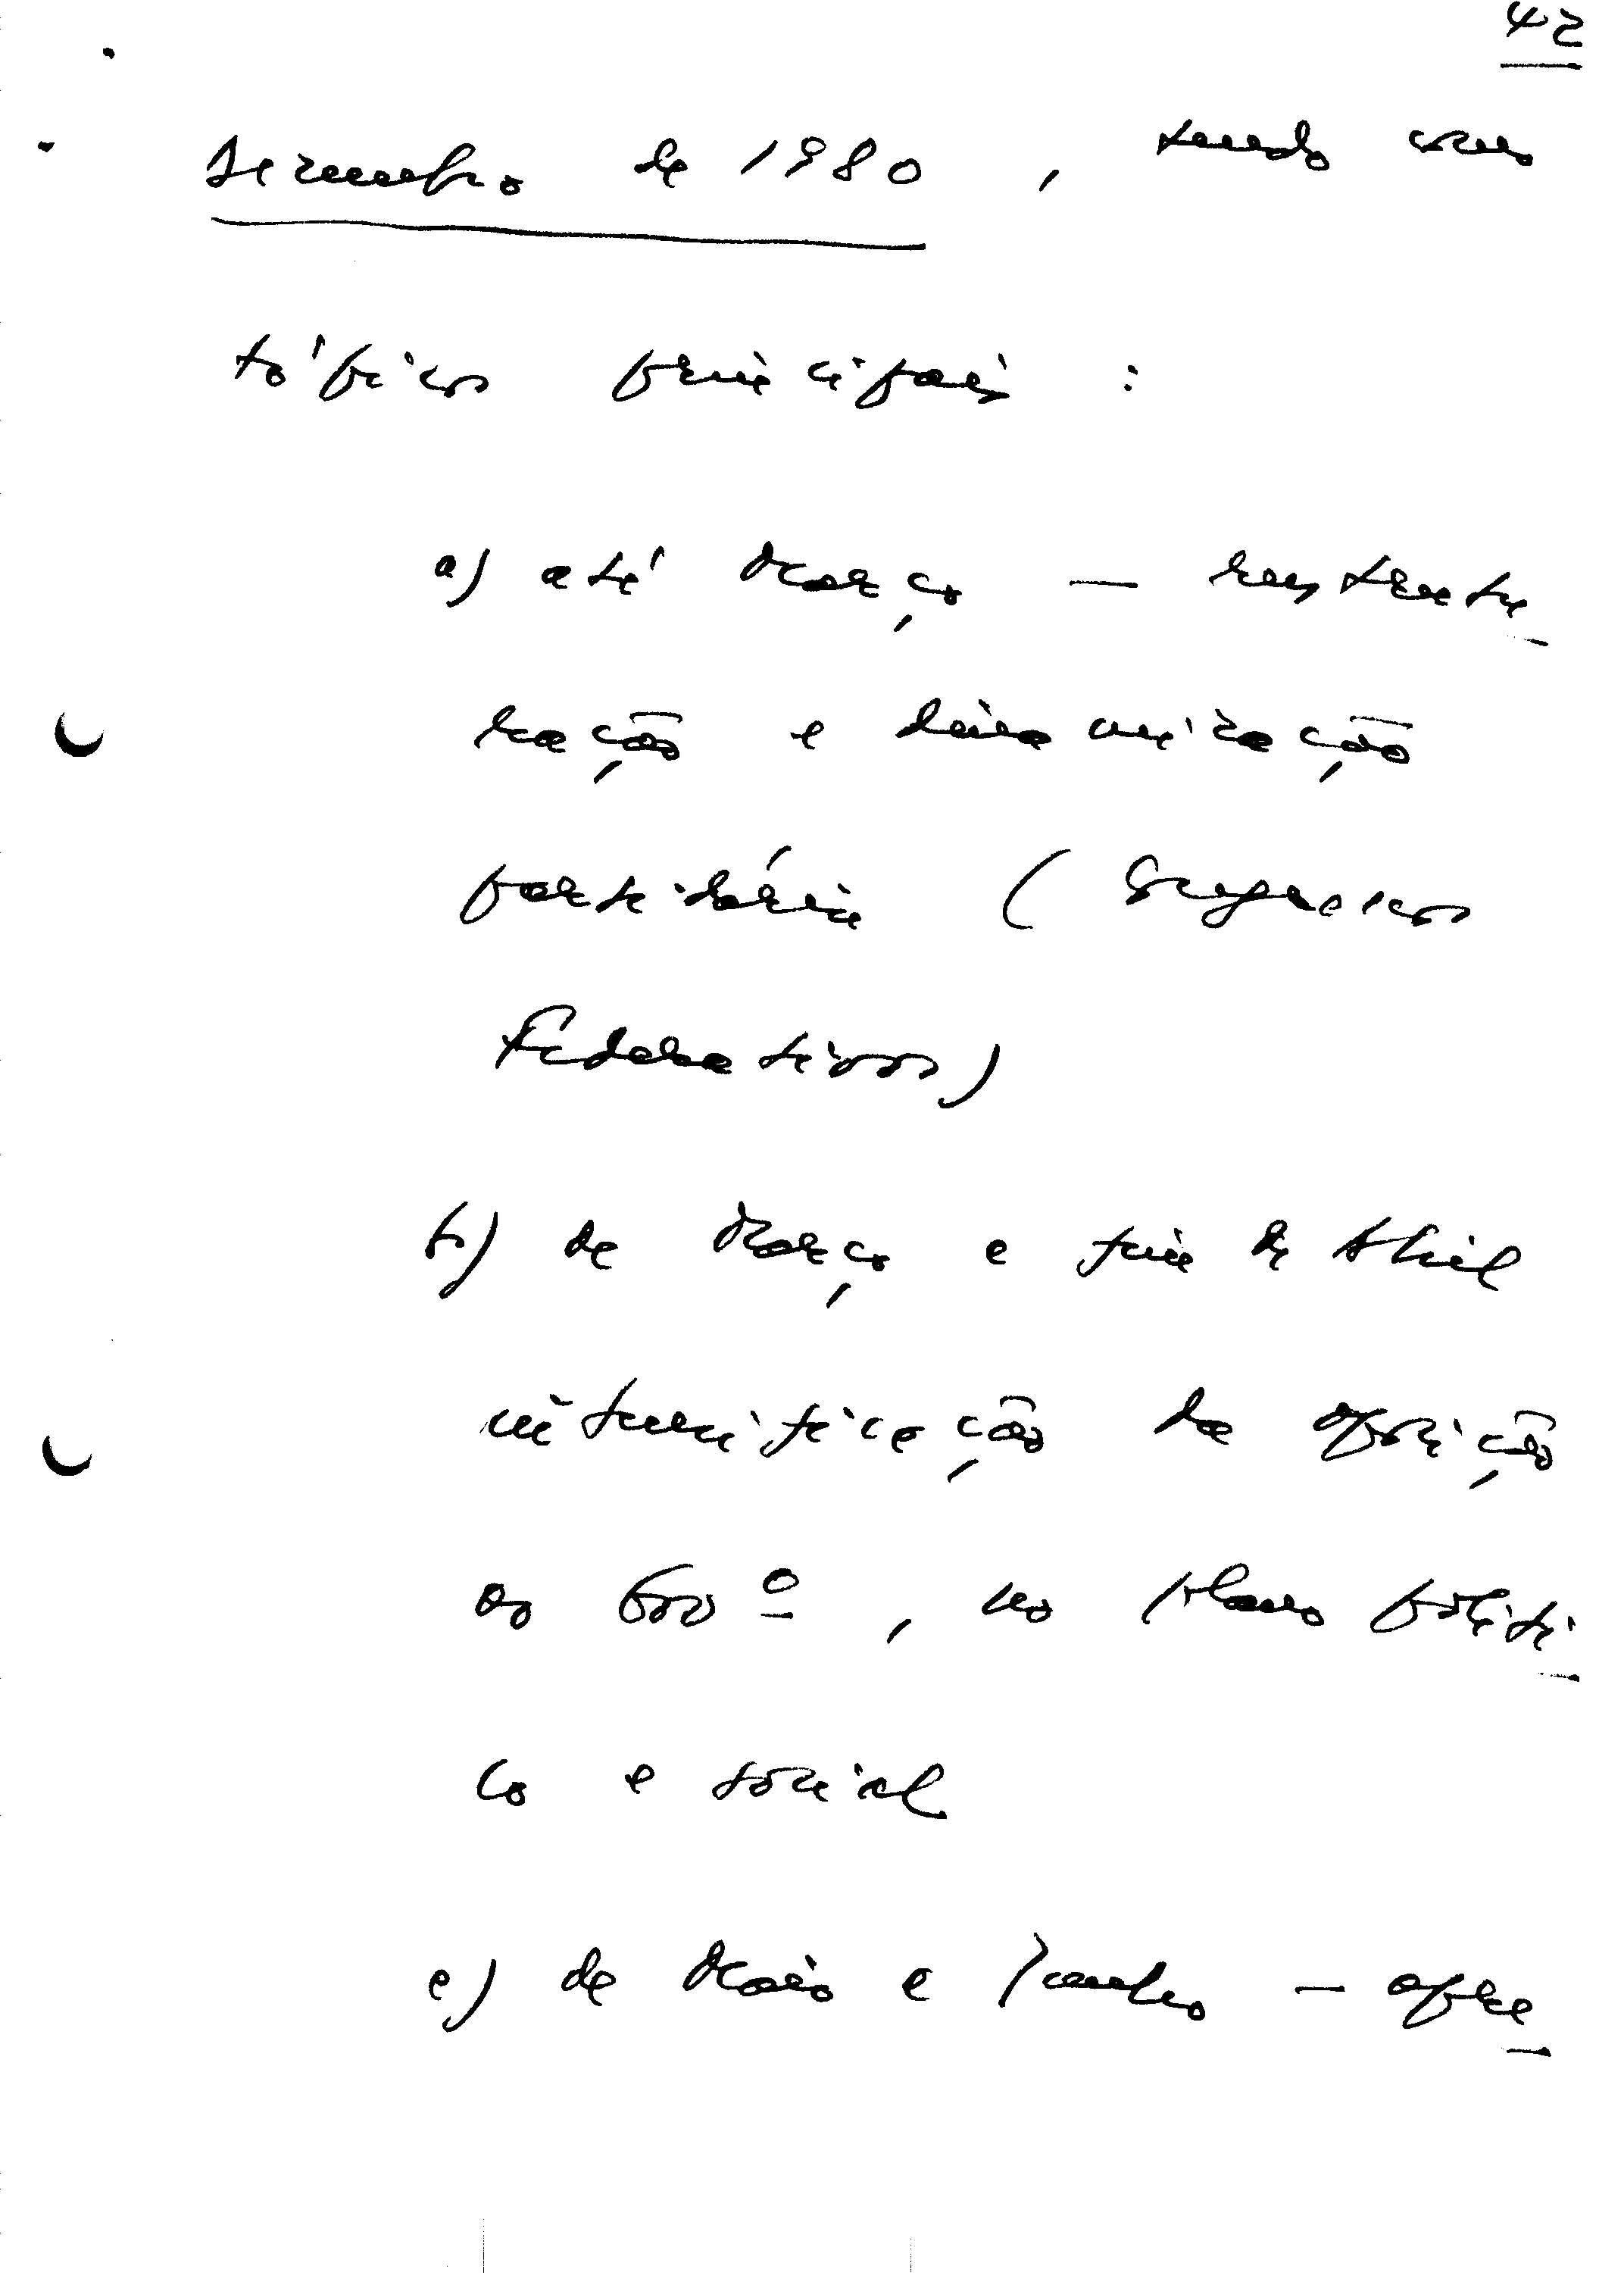 42
Dezembro de 1980, tendo como
tópicos principais:
a) até Março — reestrutu
ração e dinamização
partidária (Congressos
Federativos)
b) de Março a fim de Abril
intensificação da oposição
ao Govº, no plano políti
co e social
c) de Maio a Junho — apre